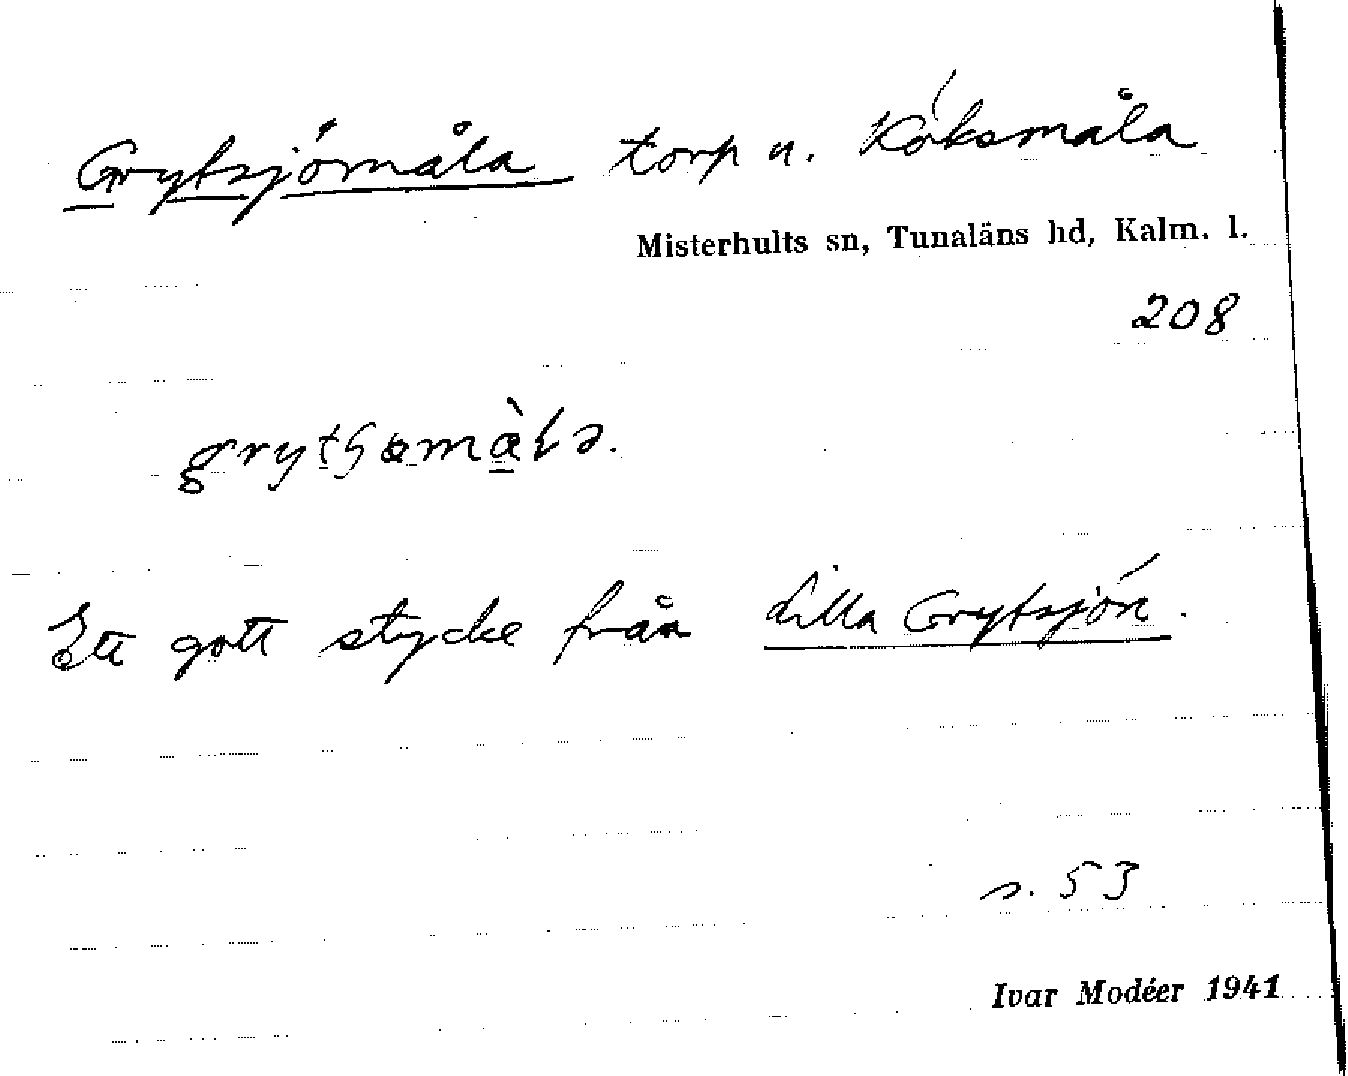 Grytsjömåla torp u. Köksmåla
Misterhults sn, Tunaläns hd, Kalm. l.
208
Ett gott stycke från Lilla Grytsjön.
s. 53
Ivar Modéer 1941